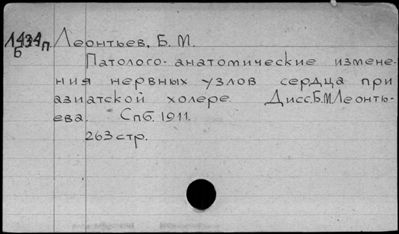 1434п Леонтьев, Б. М.
Б
Патолого-анатомические измене-
ния нервных узлов сердца при
азиатской холере. Дисс. Б.М Леонть-
ева. Спб. 1911.
263 стр.